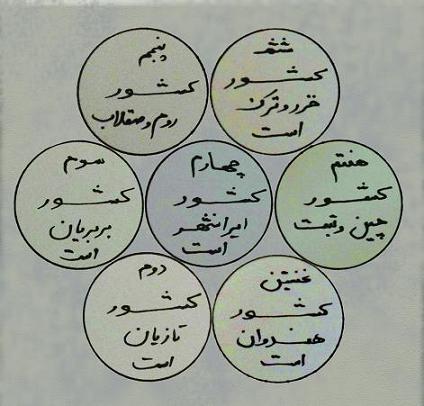 پنجم
کشور
روم و صقلاب
ششم
کشور
خزر و ترک
است
سوم
کشور
بربریان
است
چهارم
کشور
ایرانشهر
است
هفتم
کشور
چین و تبت
دوم
کشور
تازیان
است
نخستین
کشور
هندوان
است